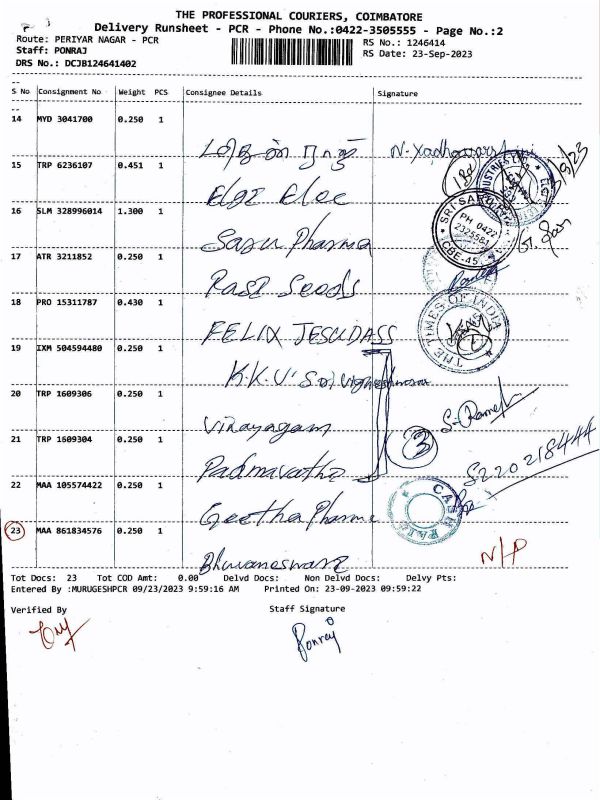 THE PROFESSIONAL COURIERS, COIMBATORE
Delivery Runsheet - PCR - Phone No.:0422-3505555 - Page No.:2
Route: PERIYAR NAGAR - PCR
RS No.: 1246414
Staff: PONRAJ
RS Date: 23-Sep-2023
DRS No.: DCJB124641402
S No Consignment No Weight PCS Consignee Details Signature
14 MYD 3041700 0.250 1
15 TRP 6236107 0.451 1
Elgi Elec
16 SLM 328996014 1.300 1
Saru Pharma
17 ATR 3211852 0.250 1
Rasi Seeds
18 PRO 15311787 0.430 1
FELIX JESUDASS
19 IXM 504594480 0.250 1
K.K.V. Sri Vigneshwara
20 TRP 1609306 0.250 1
Vinayagam
S. Ramesh
21 TRP 1609304 0.250 1
3
Padmavathi
S220218444
22 MAA 105574422 0.250 1
Geetha Pharma
23 MAA 861834576 0.250 1
Bhuvaneswari
N/P
PH 0422
2325561
CBE-45
THE TIMES OF INDIA
Tot Docs: 23 Tot COD Amt: 0.00 Delvd Docs: Non Delvd Docs: Delvy Pts:
Entered By :MURUGESHPCR 09/23/2023 9:59:16 AM Printed On: 23-09-2023 09:59:22
Verified By Staff Signature
Ponraj